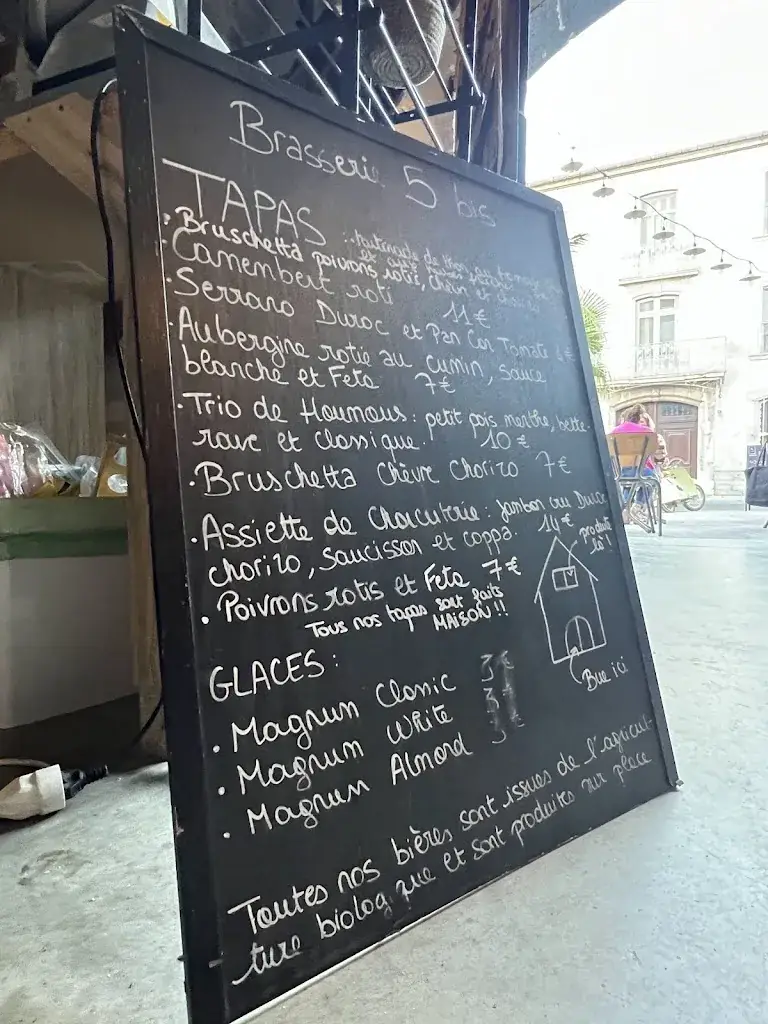 Brasserie 5 bis
TAPAS
Bruschetta poivrons rotis, et
Camembert roti 11€
· Serrano Duroc et Pan Con Tomate
· Aubergine rotie au cumin, sauce
blanche et Feta 7€
· Trio de Houmous : petit pois menthe, bette-
rave et classique 10€
· Bruschetta Chèvre Chorizo 7€
· Assiette de Charcuterie : jambon cru Duroc
chorizo, saucisson et coppa. 14€
produite
là !
· Poivrons rotis et Feta 7€
Tous nos tapas sont faits
MAISON !!
Bue ici
GLACES :
· Magnum Classic 3€
· Magnum White 3€
· Magnum Almond 3€
Toutes nos bières sont issues de l'agricul-
ture biologique et sont produites sur place